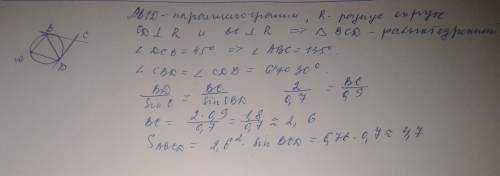 B
C
D
ABCD - параллелограмм, R - радиус окруж
CD ⊥ R и BC ⊥ R => △ BCD - равнобедренный
∠ DCB = 45° => ∠ ABC = 135°.
∠ CBD = ∠ CDB = 67° 30'.
BD / Sin C = BC / sin CBD    2 / 0,7 = BC / 0,9
BC = 2 · 0,9 / 0,7 = 1,8 / 0,7 ≈ 2,6
S ABCD = 2,6² · sin BCD = 6,76 · 0,7 ≈ 4,7